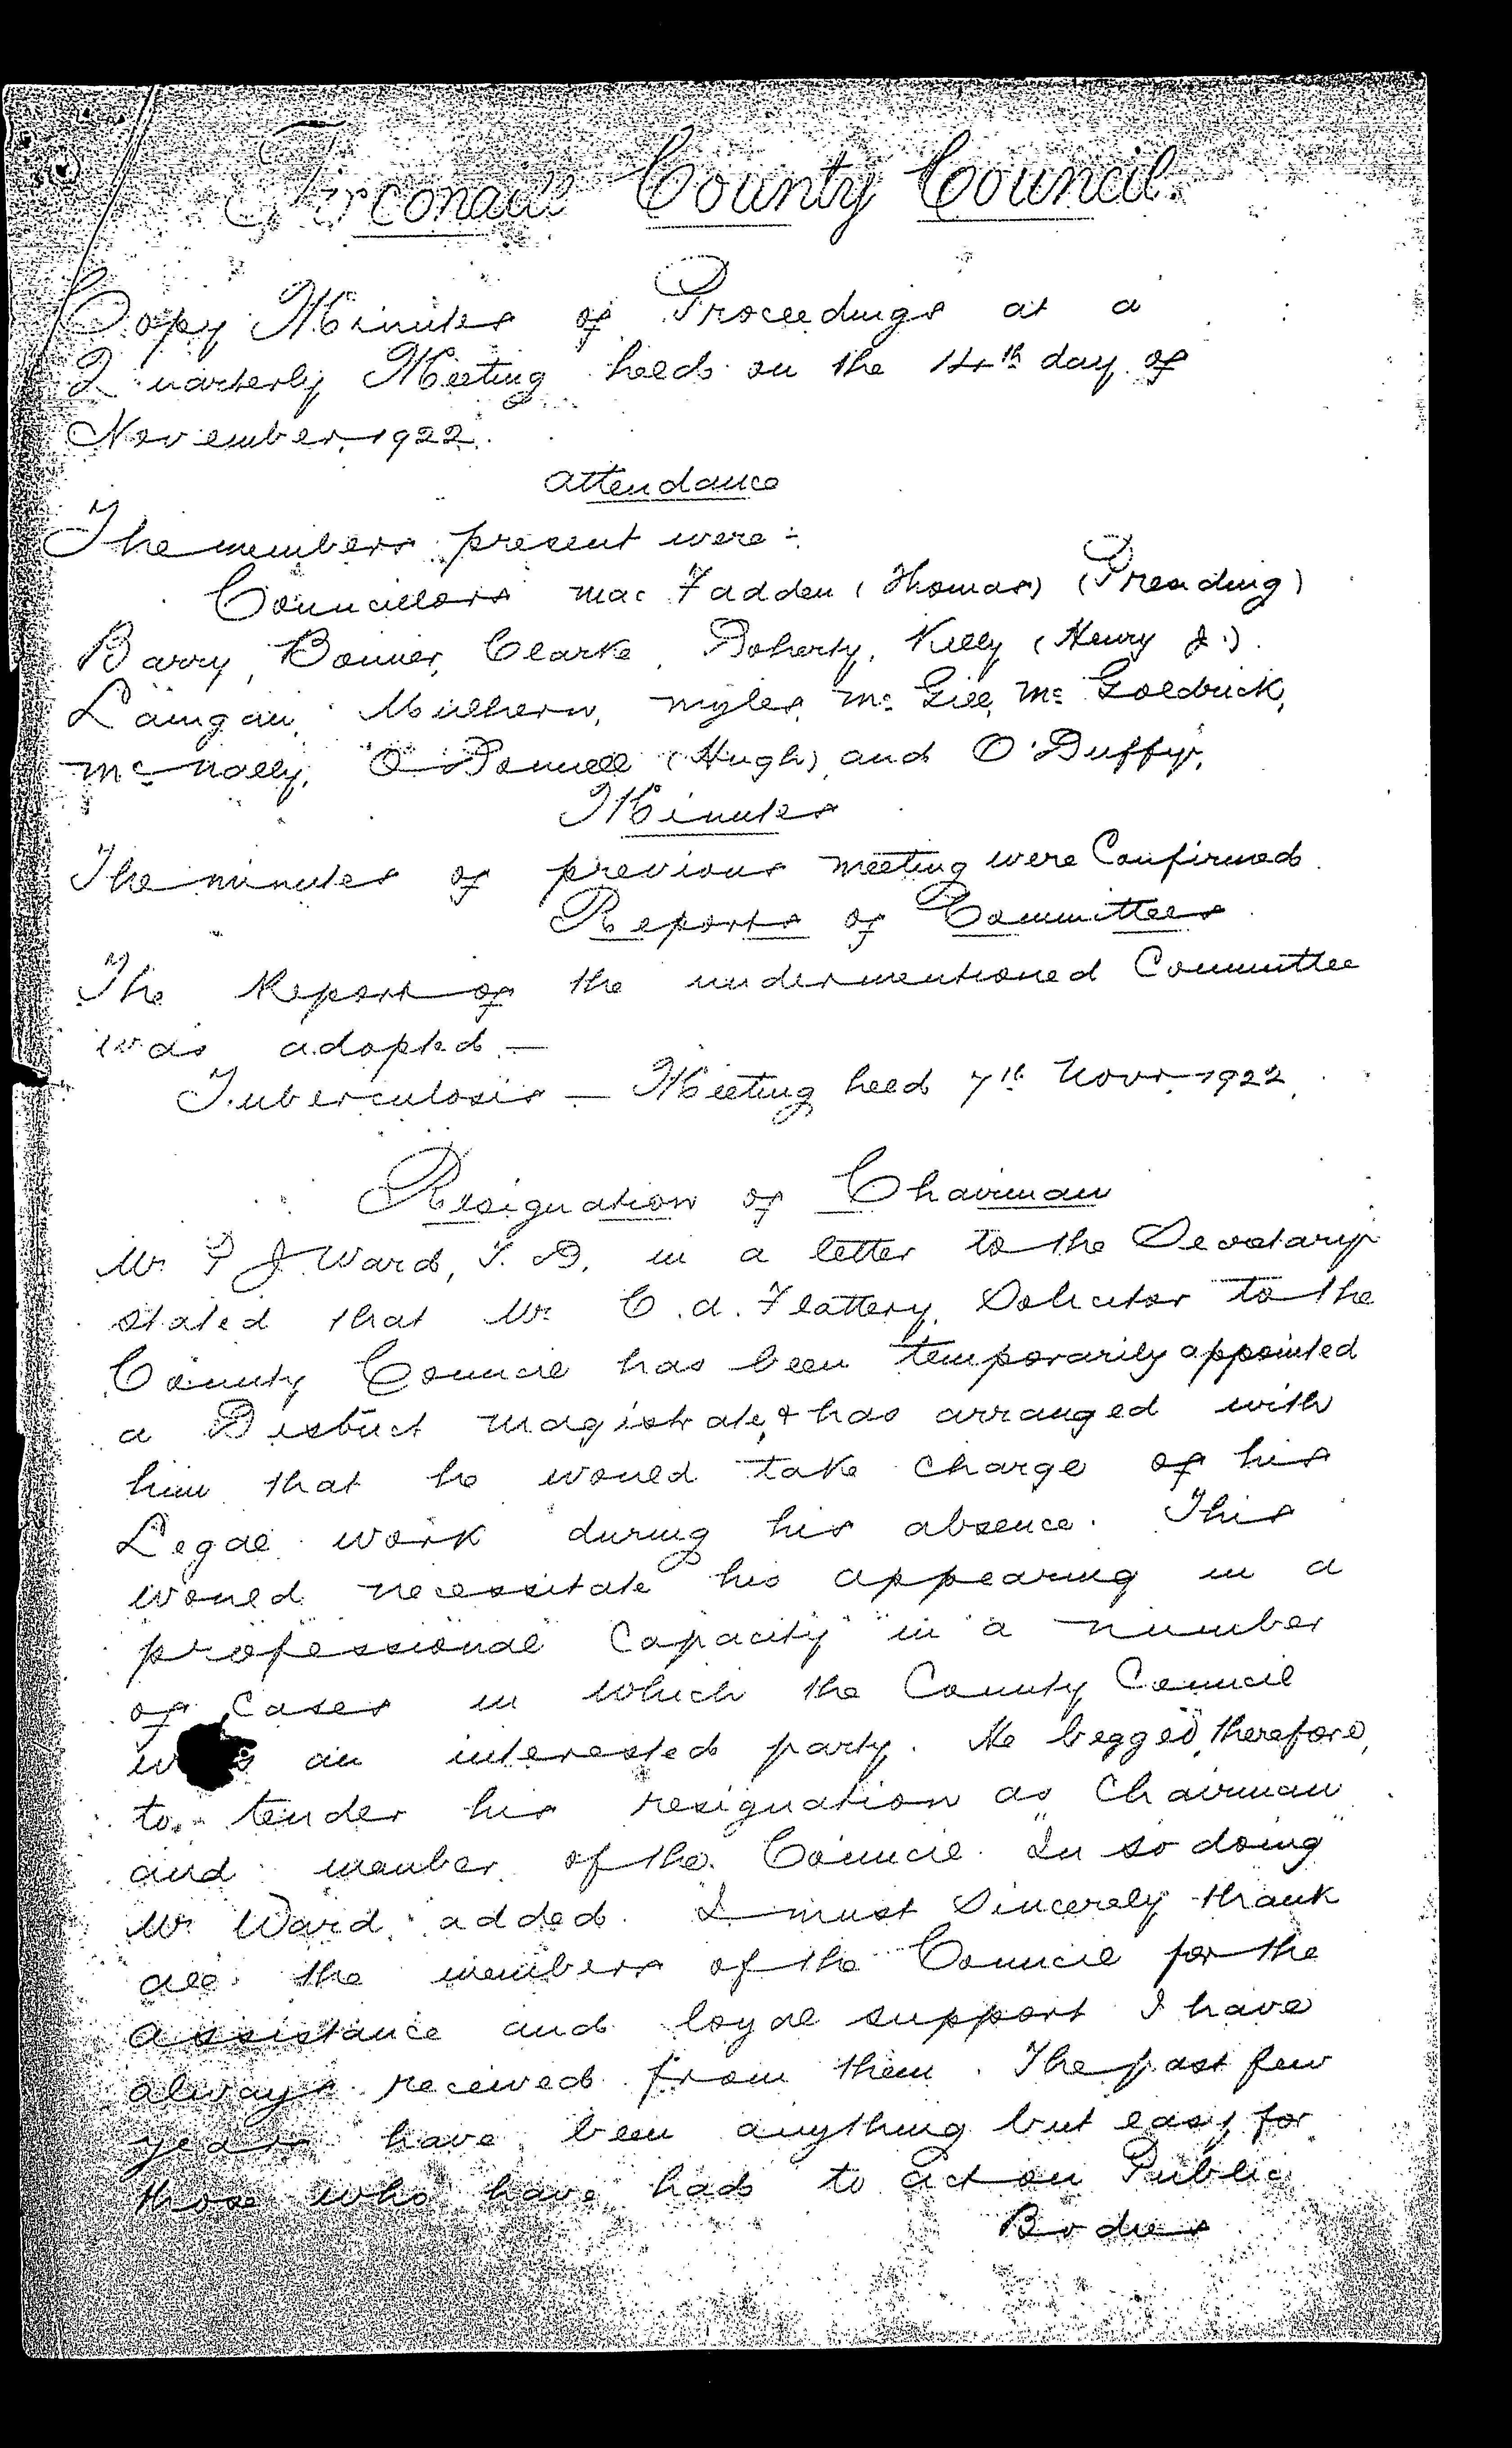 Tirconaill County Council.
Copy Minutes of Proceedings at a
Quarterly Meeting held on the 14th day of
November, 1922.
Attendance
The members present were:-
Councillors MacFadden (Thomas) (Presiding)
Barry, Bonner, Clarke, Doherty, Kelly (Henry J.)
Langan, Mulhern, Myles, McGill, McGoldrick,
McNally, O'Donnell (Hugh), and O'Duffy.
Minutes
The minutes of previous meeting were Confirmed.
Reports of Committees
The Report of the undermentioned Committee
was adopted —
Tuberculosis — Meeting held 7th Novr. 1922.
Resignation of Chairman
Mr. P J Ward, T.D. in a letter to the Secretary
stated that Mr. C.A. Flattery, Solicitor to the
County Council has been temporarily appointed
a District Magistrate, & has arranged with
him that he would take charge of his
Legal work during his absence. This
would necessitate his appearing in a
professional capacity in a number
of cases in which the County Council
was an interested party. He begged, therefore,
to tender his resignation as Chairman
and member of the Council. "In so doing"
Mr. Ward added. "I must sincerely thank
all the members of the Council for the
assistance and loyal support I have
always received from them. The past few
years have been anything but easy for
those who have had to act on Public
Bodies